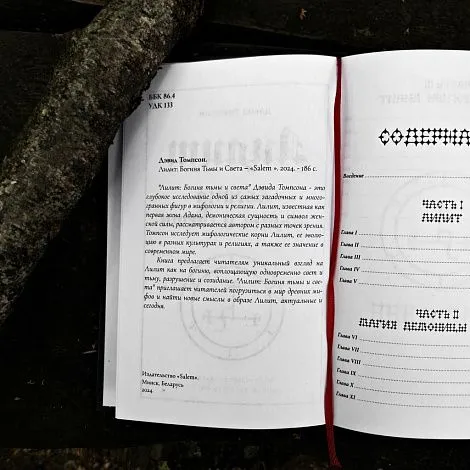 ББК 86.4
УДК 133
Дэвид Томпсон.
Лилит: Богиня Тьмы и Света – «Salem ». 2024. - 186 с.
"Лилит: Богиня тьмы и света" Дэвида Томпсона - это
глубокое исследование одной из самых загадочных и много-
гранных фигур в мифологии и религии. Лилит, известная как
первая жена Адама, демоническая сущность и символ жен-
ской силы, рассматривается автором с разных точек зрения.
Томпсон исследует мифологические корни Лилит, ее эволю-
цию в разных культурах и религиях, а также ее значение в
современном мире.
Книга предлагает читателям уникальный взгляд на
Лилит как на богиню, воплощающую одновременно свет и
тьму, разрушение и созидание. "Лилит: Богиня тьмы и све-
та" приглашает читателей погрузиться в мир древних ми-
фов и найти новые смыслы в образе Лилит, актуальные и
сегодня.
Издательство «Salem».
Минск, Беларусь
2024
СОДЕРЖА
Введение
ЧАСТЬ I
ЛИЛИТ
Глава I
Глава II
Глава III
Глава IV
Глава V
ЧАСТЬ II
МАГИЯ ДЕМОНИЦЫ
Глава VI
Глава VII
Глава VIII
Глава IX
Глава X
Глава XI